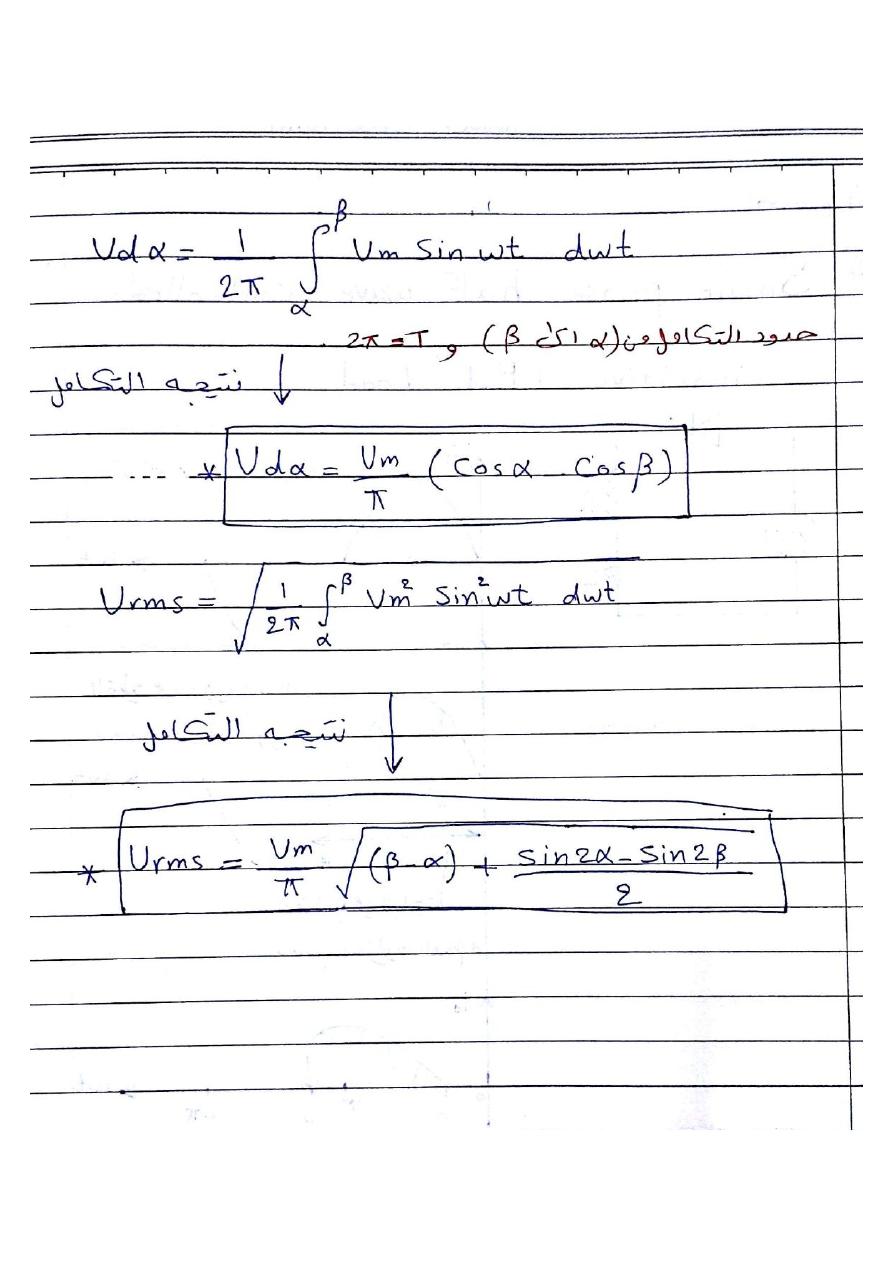 Vdα = 1/2π ∫_α^β Vm Sin wt dwt
حدود التكامل من (α الى β) و 2π = T .
نتيجه التكامل ↓
... * Vdα = Vm/π (Cosα - Cosβ)
Vrms = √(1/2π ∫_α^β Vm² Sin² wt dwt)
نتيجه التكامل ↓
* Vrms = Vm/π √((β-α) + (Sin2α - Sin2β)/2)